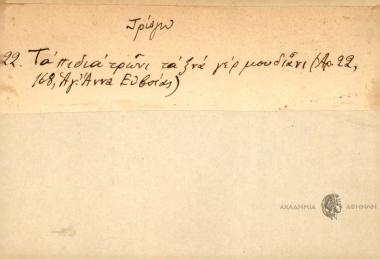 τρώγω
22. Τα πιδιά τρώνι τα ξνά γέρ μουδιάνι (Αρ. 22,
168, Αγ. Άννα Ευβοίας)
ΑΚΑΔΗΜΙΑ ΑΘΗΝΩΝ